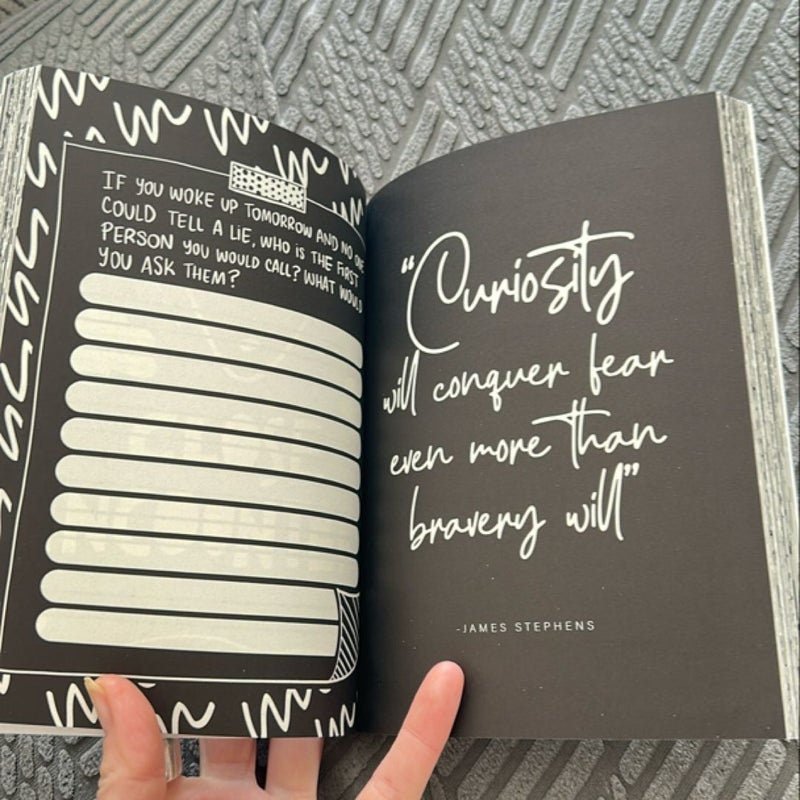 IF YOU WOKE UP TOMORROW AND NO ONE
COULD TELL A LIE, WHO IS THE FIRST
PERSON YOU WOULD CALL? WHAT WOULD
YOU ASK THEM?
“Curiosity
will conquer fear
even more than
bravery will”
-JAMES STEPHENS